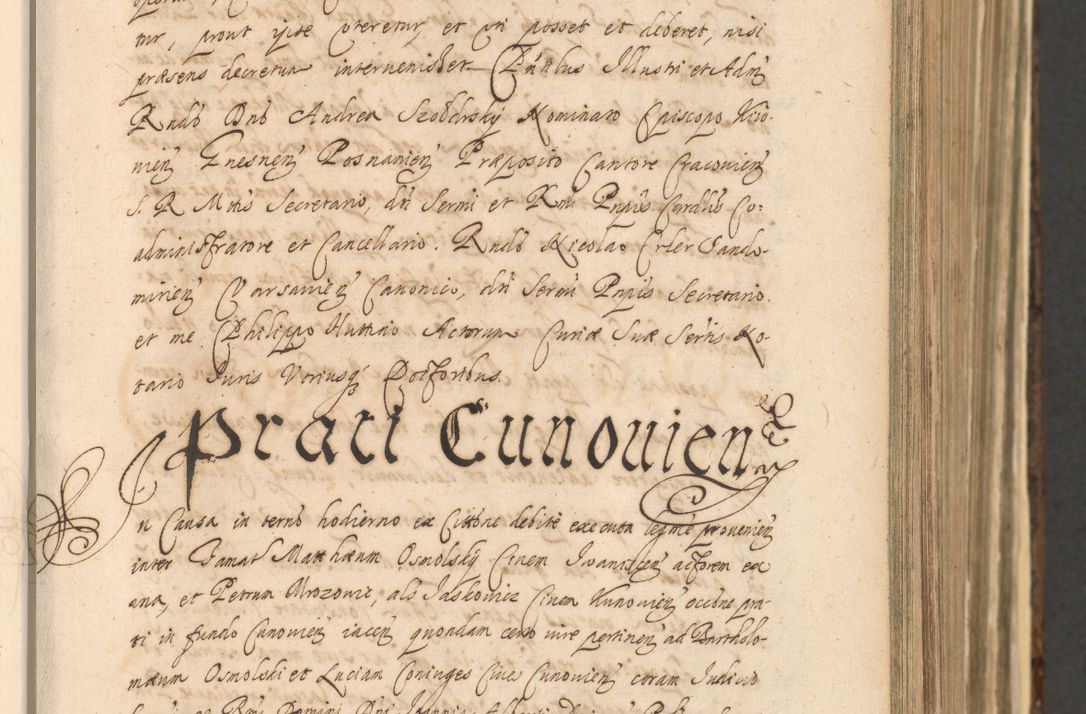 tur, prout iure coteretur, et uti posset et deberet, nisi
præsens decretum intervenisset Pñtibus Illustri et Adm̃
Rndo Dno Andrea Szołdrsky Nominato Episcopo Kiio-
vien̄ Gnesnen̄ Posnanien̄ Præposito Cantore Cracovien̄
S. R. Mtis Secretario, dn̄i Sermi et Rmi Pnpis Cardlis Co-
administratore et Cancellario. Rndo Nicolao Erler Sando-
mirien̄ Varsavien̄ Canonico, dn̄i Sermi Pnpis Secretario
et me Philippo Huttinio Actorum Curiæ Suæ Sertis No-
tario Iuris Utriusq̃ Doctoribus.
Prati Cunouien
In Causa in termo hodierno ex Cittone debite executa legme provenien̄
inter Famat Matthæum Osmolsky Civem Iwanicen̄ actorem ex
una, et Petrum Mrozowic, als Iaskowicz Civem Kunovien̄ occone pra-
ti in fundo Cunovien̄ iacen̄ quondam certo iure pertinen̄ ad Bartholo-
mæum Osmolski et Luciam Coniuges Cives Cunovien̄ coram Iudicio